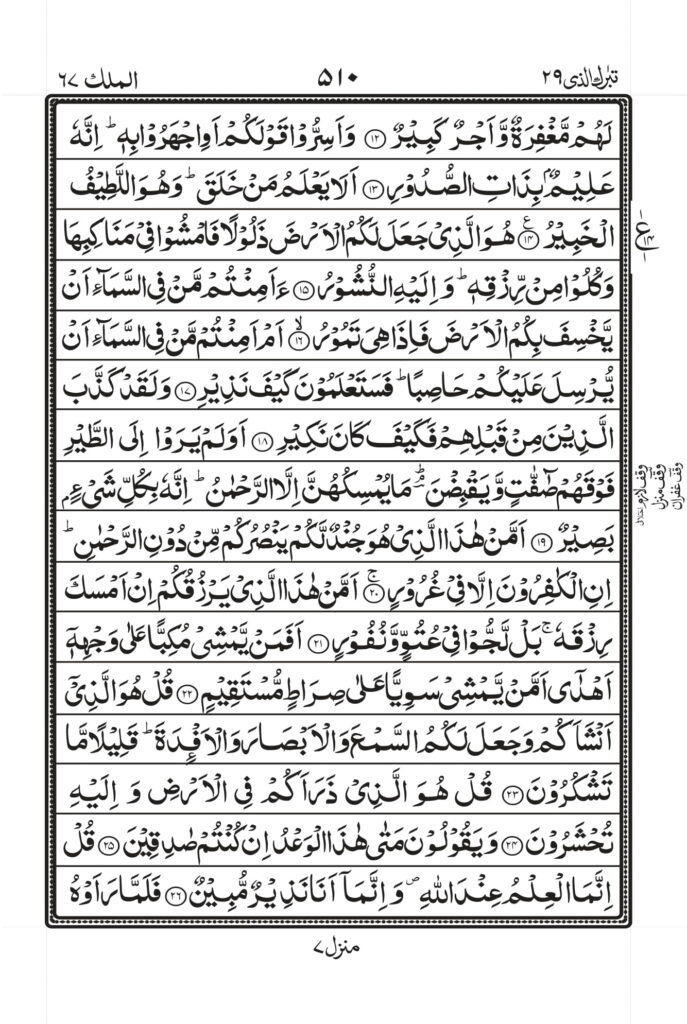 تبٰرك الذی ٢٩
٥١٠
الملك ٦٧
لَهُمْ مَّغْفِرَةٌ وَّاَجْرٌ كَبِيْرٌ ﴿١٢﴾ وَاَسِرُّوْا قَوْلَكُمْ اَوِاجْهَرُوْا بِهٖ ؕ اِنَّهٗ
عَلِيْمٌۢ بِذَاتِ الصُّدُوْرِ ﴿١٣﴾ اَلَا يَعْلَمُ مَنْ خَلَقَ ؕ وَهُوَ اللَّطِيْفُ
الْخَبِيْرُ ﴿١٤﴾ۧ هُوَ الَّذِىْ جَعَلَ لَكُمُ الْاَرْضَ ذَلُوْلًا فَامْشُوْا فِىْ مَنَاكِبِهَا
وَكُلُوْا مِنْ رِّزْقِهٖ ؕ وَاِلَيْهِ النُّشُوْرُ ﴿١٥﴾ ءَاَمِنْتُمْ مَّنْ فِى السَّمَآءِ اَنْ
يَّخْسِفَ بِكُمُ الْاَرْضَ فَاِذَا هِىَ تَمُوْرُ ﴿١٦﴾ۙ اَمْ اَمِنْتُمْ مَّنْ فِى السَّمَآءِ اَنْ
يُّرْسِلَ عَلَيْكُمْ حَاصِبًا ؕ فَسَتَعْلَمُوْنَ كَيْفَ نَذِيْرِ ﴿١٧﴾ وَلَقَدْ كَذَّبَ
الَّذِيْنَ مِنْ قَبْلِهِمْ فَكَيْفَ كَانَ نَكِيْرِ ﴿١٨﴾ اَوَلَمْ يَرَوْا اِلَى الطَّيْرِ
فَوْقَهُمْ صٰٓفّٰتٍ وَّيَقْبِضْنَ ؔۘؕ مَا يُمْسِكُهُنَّ اِلَّا الرَّحْمٰنُ ؕ اِنَّهٗ بِكُلِّ شَىْءٍۢ
بَصِيْرٌ ﴿١٩﴾ اَمَّنْ هٰذَا الَّذِىْ هُوَ جُنْدٌ لَّكُمْ يَنْصُرُكُمْ مِّنْ دُوْنِ الرَّحْمٰنِ ؕ
اِنِ الْكٰفِرُوْنَ اِلَّا فِىْ غُرُوْرٍ ﴿٢٠﴾ۚ اَمَّنْ هٰذَا الَّذِىْ يَرْزُقُكُمْ اِنْ اَمْسَكَ
رِزْقَهٗ ۚ بَلْ لَّجُّوْا فِىْ عُتُوٍّ وَّنُفُوْرٍ ﴿٢١﴾ اَفَمَنْ يَّمْشِىْ مُكِبًّا عَلٰى وَجْهِهٖۤ
اَهْدٰٓى اَمَّنْ يَّمْشِىْ سَوِيًّا عَلٰى صِرَاطٍ مُّسْتَقِيْمٍ ﴿٢٢﴾ قُلْ هُوَ الَّذِىْۤ
اَنْشَاَكُمْ وَجَعَلَ لَكُمُ السَّمْعَ وَالْاَبْصَارَ وَالْاَفْـِٕدَةَ ؕ قَلِيْلًا مَّا
تَشْكُرُوْنَ ﴿٢٣﴾ قُلْ هُوَ الَّذِىْ ذَرَاَكُمْ فِى الْاَرْضِ وَاِلَيْهِ
تُحْشَرُوْنَ ﴿٢٤﴾ وَيَقُوْلُوْنَ مَتٰى هٰذَا الْوَعْدُ اِنْ كُنْتُمْ صٰدِقِيْنَ ﴿٢٥﴾ قُلْ
اِنَّمَا الْعِلْمُ عِنْدَ اللّٰهِ ۪ وَاِنَّمَاۤ اَنَا نَذِيْرٌ مُّبِيْنٌ ﴿٢٦﴾ فَلَمَّا رَاَوْهُ
ع
١٤
وقف لازم
وقف منزل
وقف غفران
منزل ٧